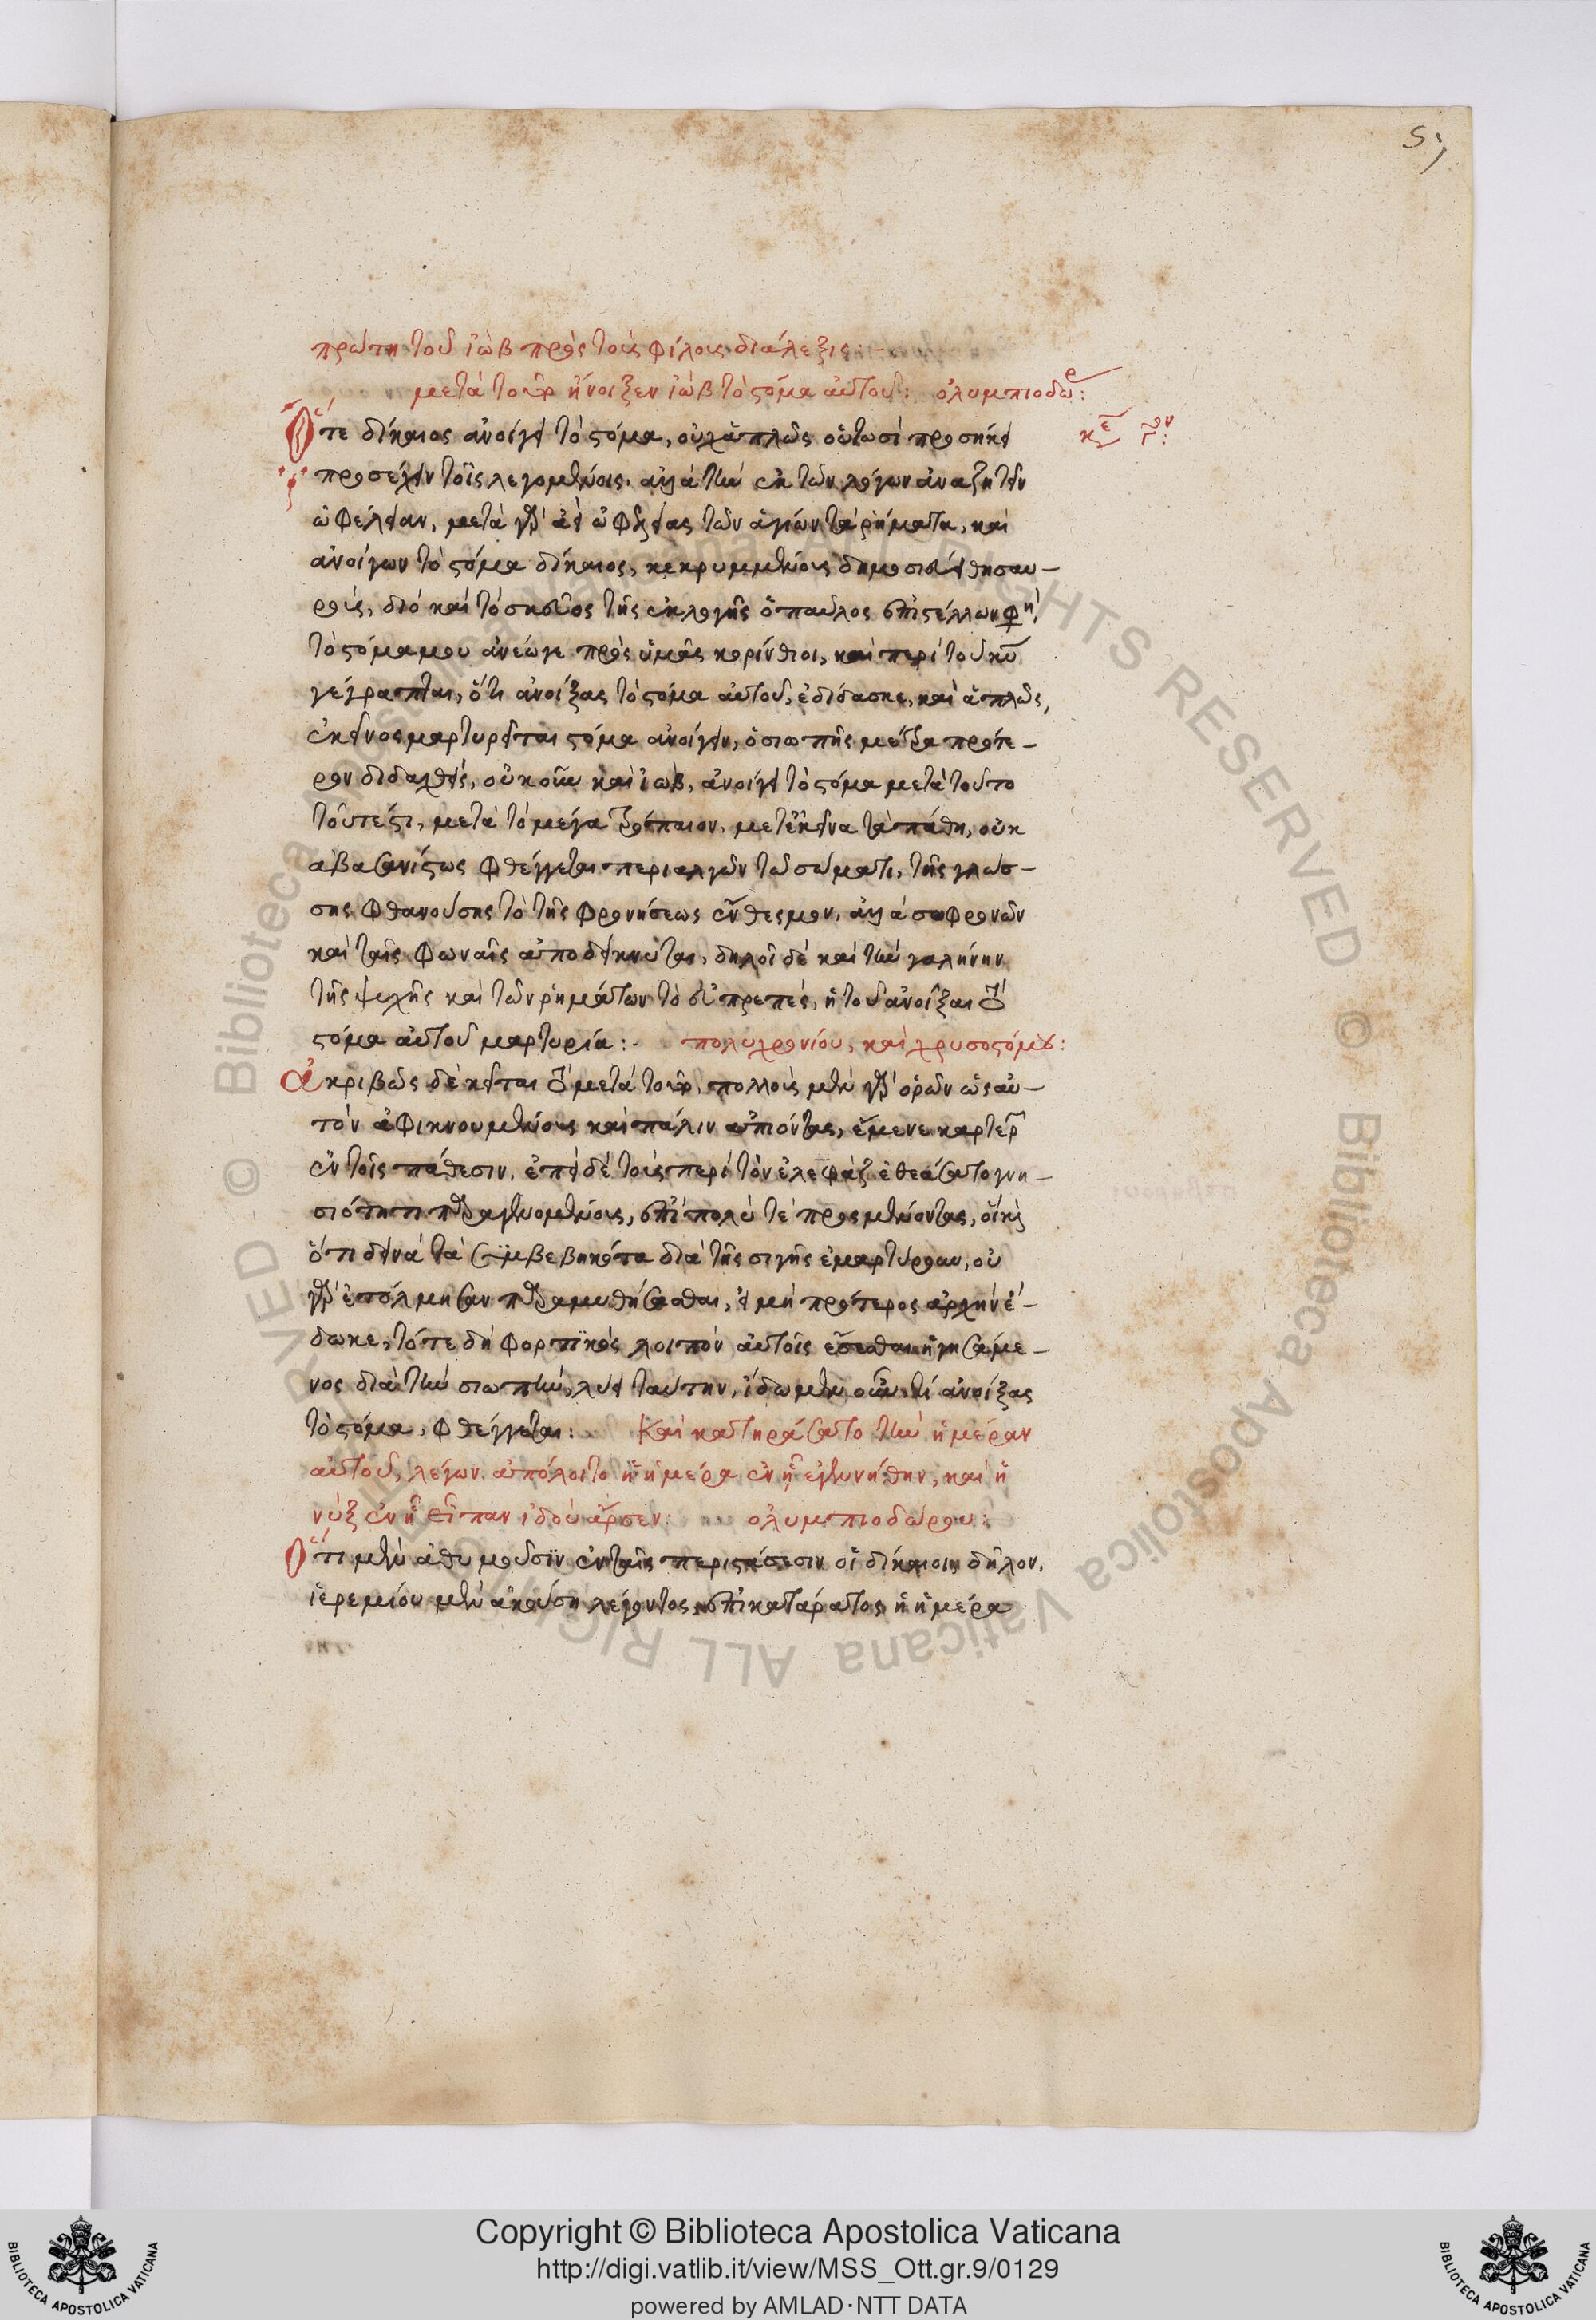 ς)
πρώτη τοῦ ἰὼβ πρὸς τοὺς φίλους διάλεξις:-
μετὰ τοῦτο ἤνοιξεν ἰὼβ τὸ στόμα αὐτοῦ: ὀλυμπιοδώρ:
Ὅτε δίκαιος ἀνοίγει τὸ στόμα, οὐχ ἁπλῶς οὑτωσὶ προσήκει
προσέχειν τοῖς λεγομένοις. ἀλλὰ τὴν ἐκ τῶν λόγων ἀναζητεῖν
ὠφέλειαν, μετὰ γὰρ ἀεὶ ὠφελείας τῶν ἁγίων τὰ ῥήματα, καὶ
ἀνοίγων τὸ στόμα δίκαιος, κεκρυμμένους δημοσιεύει θησαυ-
ρούς, διὸ καὶ τὸ σκεῦος τῆς ἐκλογῆς ὁ παῦλος ἐπιστέλλων φη,
τὸ στόμα μου ἀνέωγε πρὸς ὑμᾶς κορίνθιοι, καὶ περὶ τοῦ κυ
γέγραπται, ὅτι ἀνοίξας τὸ στόμα αὐτοῦ, ἐδίδασκε, καὶ ἁπλῶς,
ἐκεῖνος μαρτυρεῖται στόμα ἀνοίγειν, ὁ σιωπῆς μείζονα πρότε-
ρον διδαχθείς, οὐκοῦν καὶ ἰώβ, ἀνοίγει τὸ στόμα μετὰ τοῦτο
τουτέστι, μετὰ τὸ μέγα τρόπαιον, μετ' ἐκεῖνα τὰ πάθη, οὐκ
ἀβασανίστως φθέγγεται περιαλγῶν τῷ σώματι, τῆς γλώσ-
σης φθανούσης τὸ τῆς φρονήσεως ἔνθεσμον, ἀλλὰ σωφρονῶν
καὶ ταῖς φωναῖς ἀποδείκνυται, δηλοῖ δὲ καὶ τὴν γαλήνην
τῆς ψυχῆς καὶ τῶν ῥημάτων τὸ εὐπρεπές, ἡ τοῦ ἀνοῖξαι τὸ
στόμα αὐτοῦ μαρτυρία:- πολυχρονίου, καὶ χρυσοστόμου:
ἀκριβῶς δὲ κεῖται τὸ μετὰ τοῦτο, πολλοὺς μὲν γὰρ ὁρῶν ὡς αὐ-
τὸν ἀφικνουμένους καὶ πάλιν ἀπιόντας, ἔμενε καρτερ
ἐν τοῖς πάθεσιν, ἐπεὶ δὲ τοὺς περὶ τὸν ἐλεφὰζ ἐθεάσατο γνη-
σιότητι παραγενομένους, ἐπὶ πολύ τε προσμένοντας, οἳ καὶ
ὅτι δεινὰ τὰ συμβεβηκότα διὰ τῆς σιγῆς ἐμαρτύρουν, οὐ
γὰρ ἐτόλμησαν παραμυθήσασθαι, εἰ μὴ πρότερος ἀρχὴν ἔ-
δωκε, τότε δὴ φορτικὸς λοιπὸν αὐτοῖς ἔσεσθαι ἡγησάμε-
νος διὰ τὴν σιωπήν, λύει ταύτην, ἴδωμεν οὖν τί ἀνοίξας
τὸ στόμα, φθέγγεται: Καὶ κατηράσατο τὴν ἡμέραν
αὐτοῦ, λέγων. ἀπόλοιτο ἡ ἡμέρα ἐν ᾗ ἐγεννήθην, καὶ ἡ
νὺξ ἐν ᾗ εἶπαν ἰδοὺ ἄρσεν: ὀλυμπιοδώρου:
Ὅτι μὲν ἀθυμοῦσιν ἐν ταῖς περιστάσεσιν οἱ δίκαιοι, δῆλον,
ἱερεμίου μὲν ἀκούση λέγοντος, ἐπικατάρατος ἡ ἡμέρα